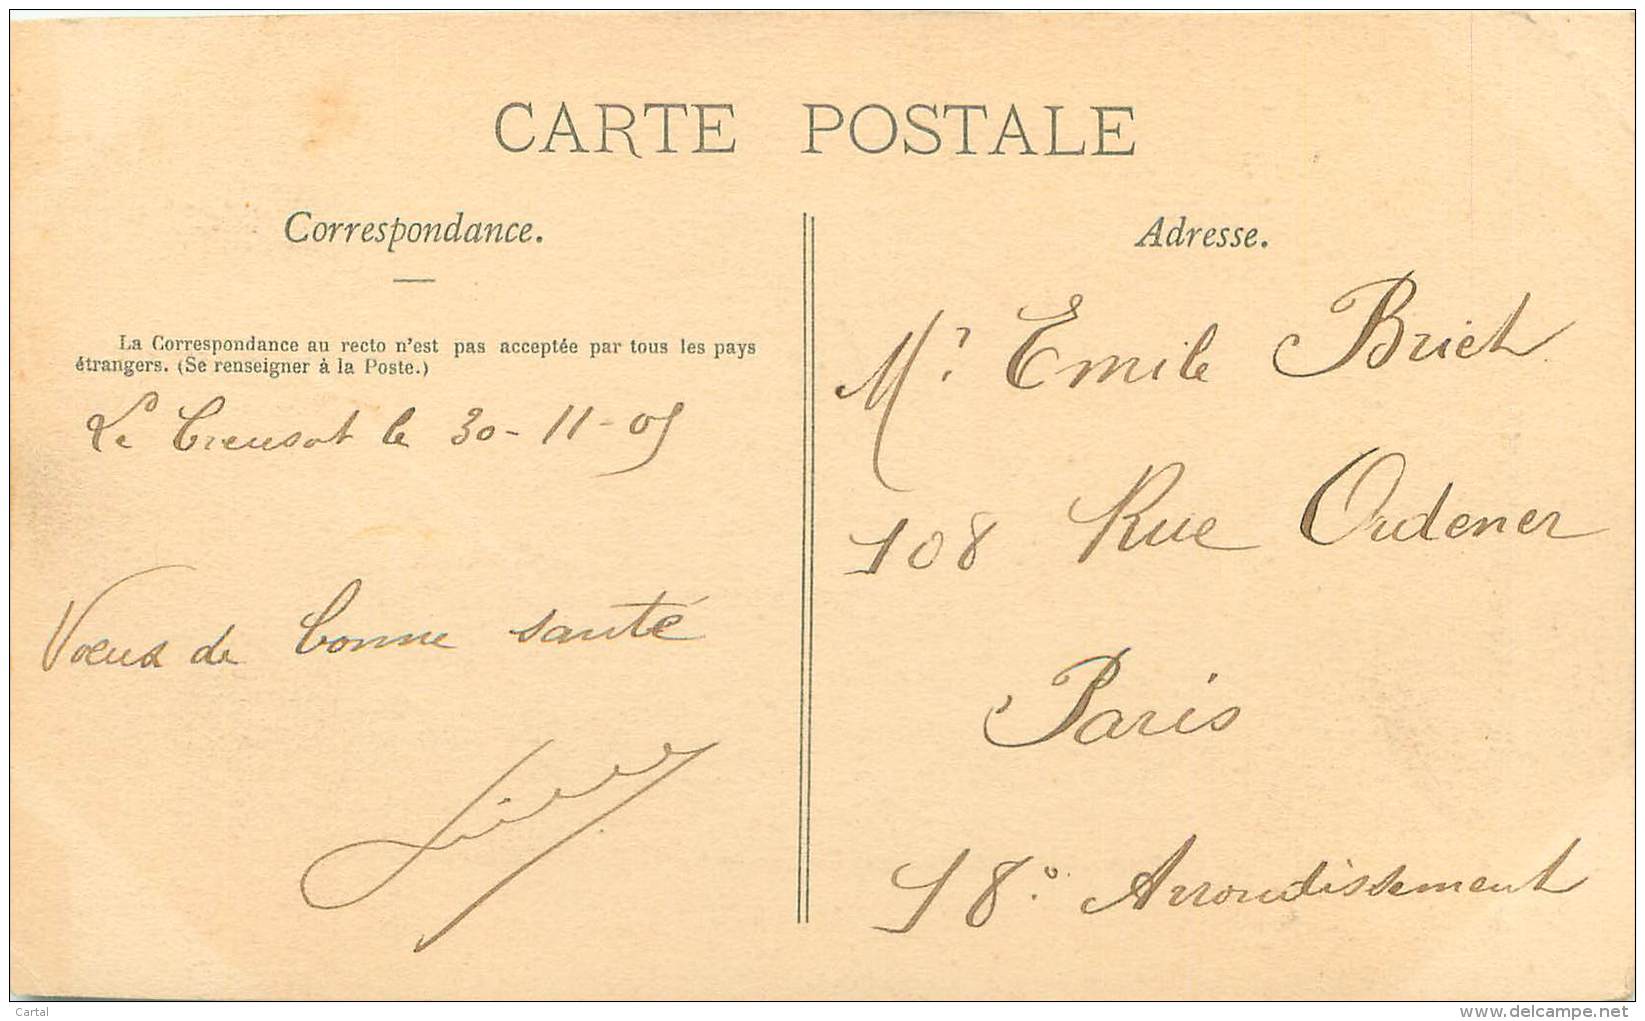 CARTE POSTALE
Correspondance.
La Correspondance au recto n'est pas acceptée par tous les pays
étrangers. (Se renseigner à la Poste.)
Le Creusot le 30-11-05
Voeux de bonne santé
Adresse.
Mr. Emile Briet
108 Rue Ordener
Paris
18e Arrondissement
Cartal
www.delcampe.net